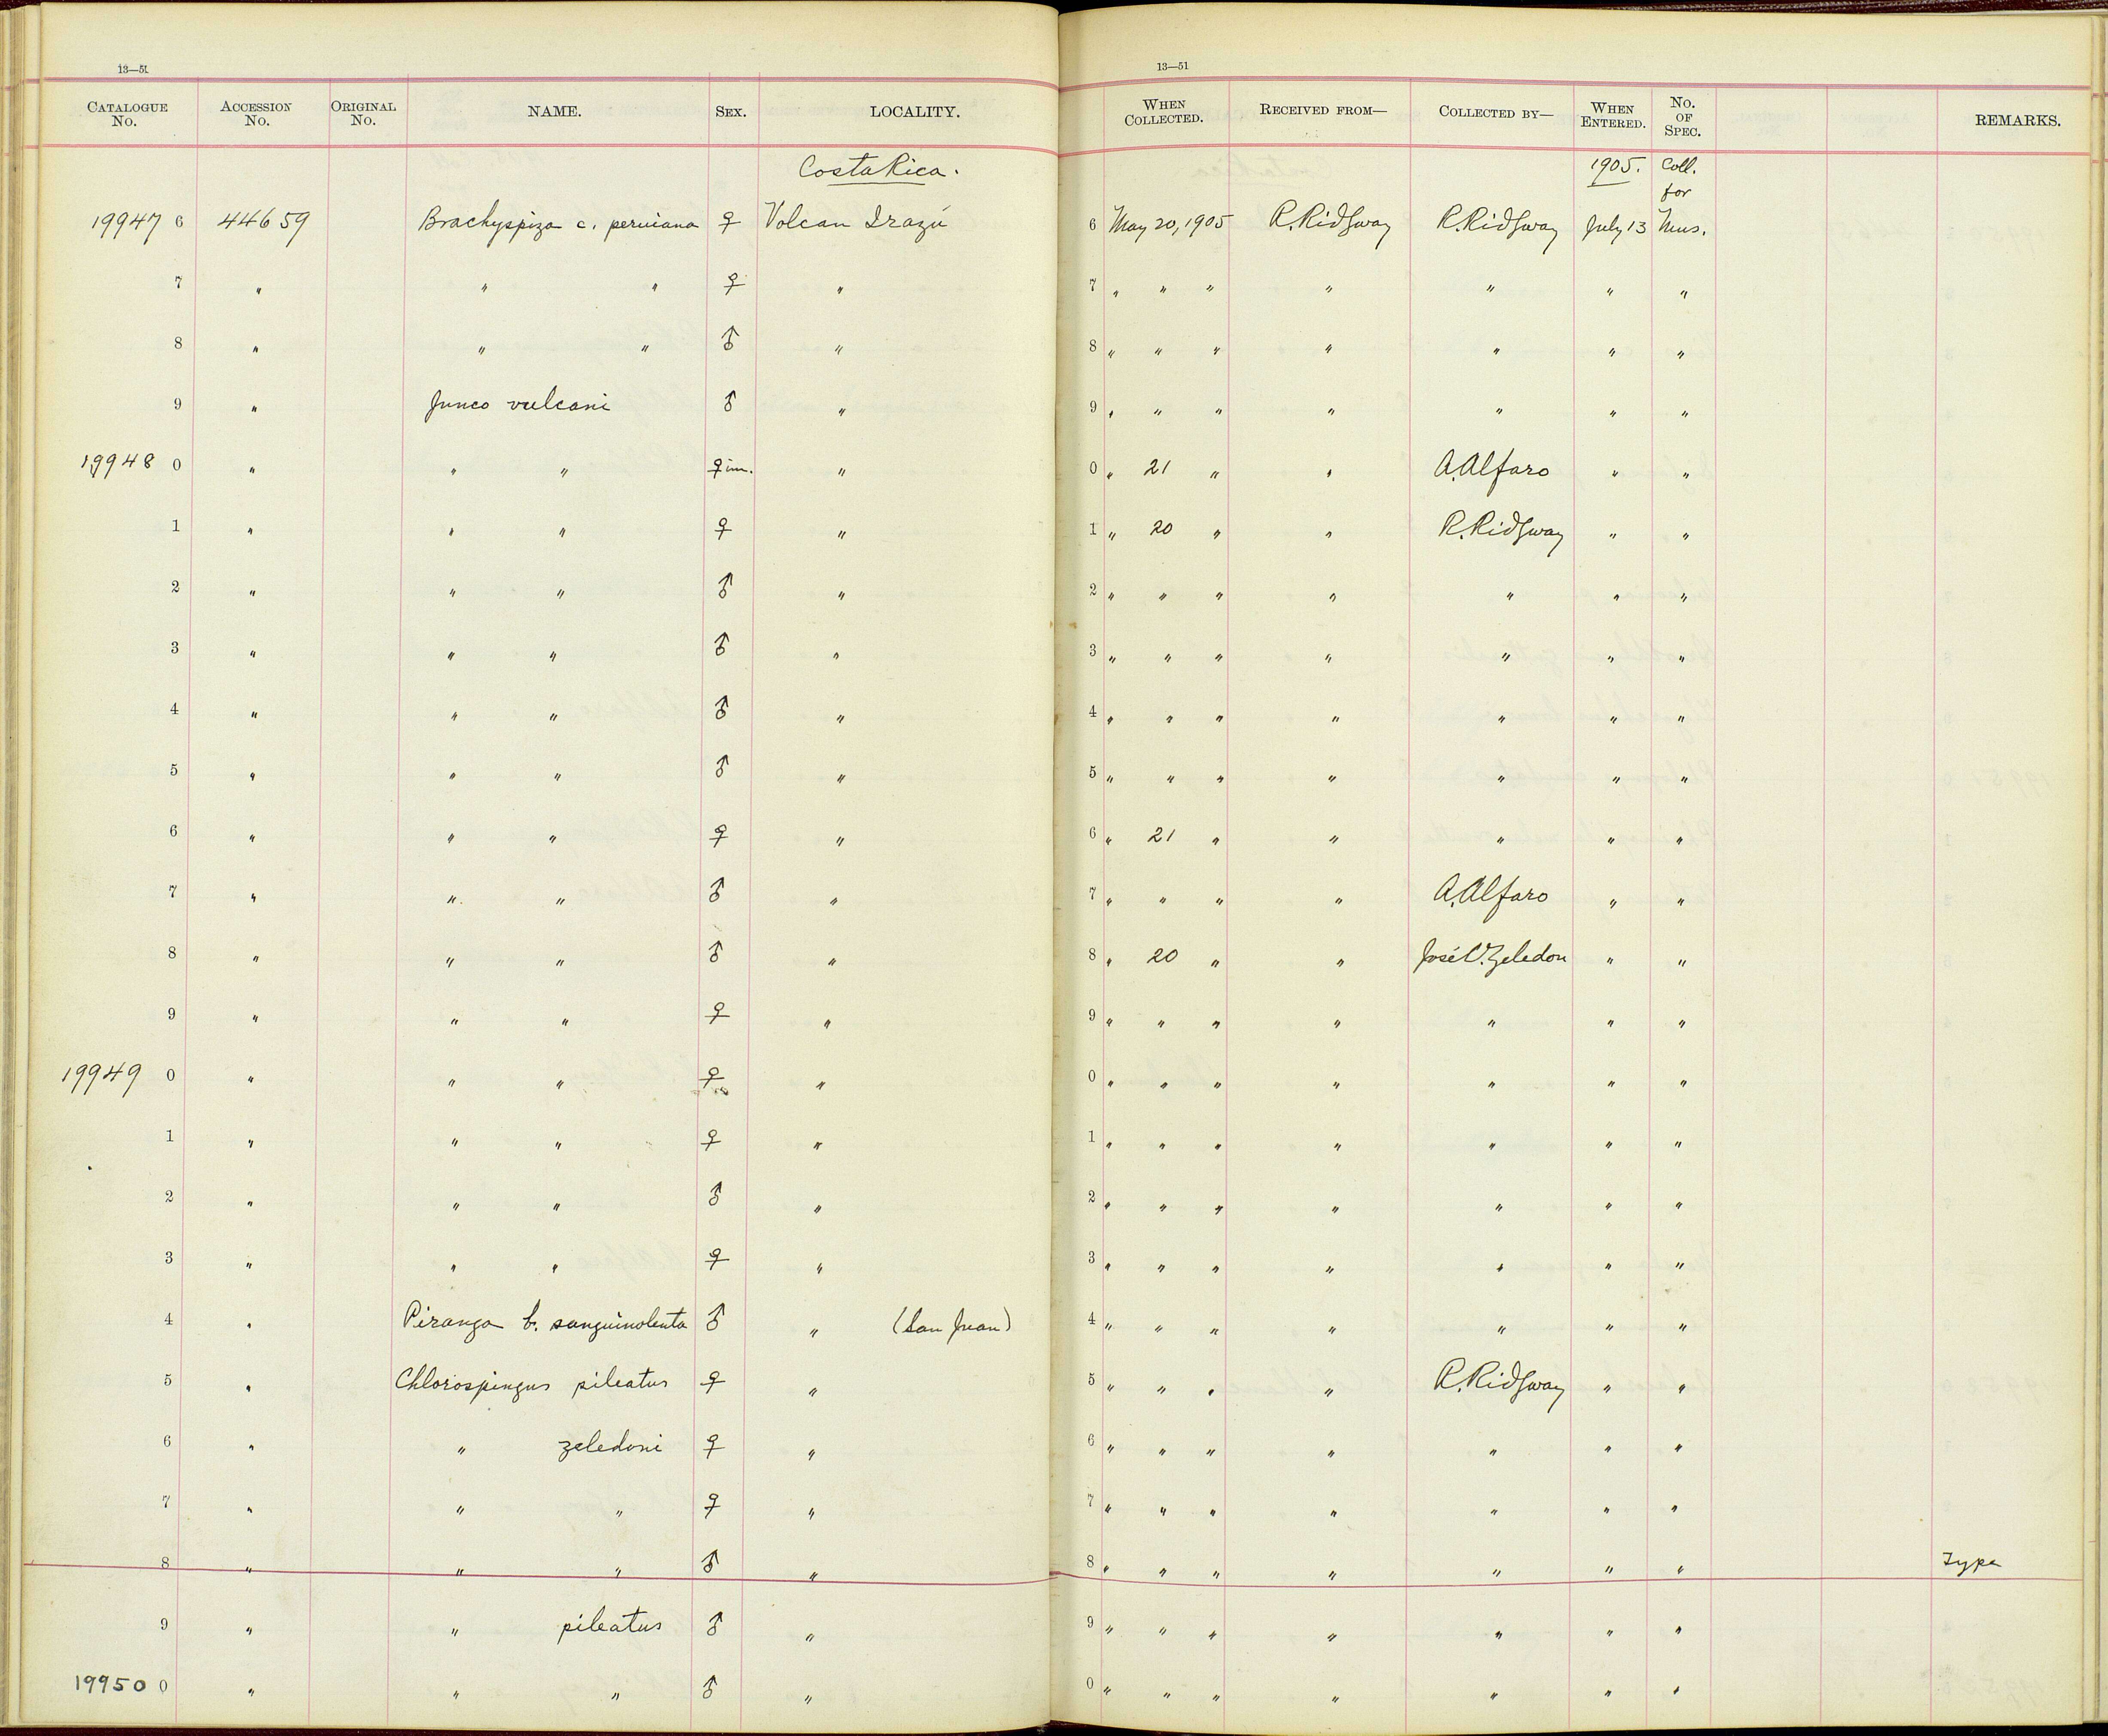 13—51 13—51
CATALOGUE No. ACCESSION No. ORIGINAL No. NAME. SEX. LOCALITY. WHEN COLLECTED. RECEIVED FROM— COLLECTED BY— WHEN ENTERED. No. OF SPEC. REMARKS.
Costa Rica. 1905. Coll. for
19947 6 44659 Brachyspiza c. peruviana ♀ Volcan Irazú 6 May 20, 1905 R. Ridgway R. Ridgway July 13 Mus.
7 " " " ♀ " 7 " " " " " " "
8 " " " ♂ " 8 " " " " " " "
9 " Junco vulcani ♂ " 9 " " " " " " "
19948 0 " " " ♀ im. " 0 " 21 " " A. Alfaro " "
1 " " " ♀ " 1 " 20 " " R. Ridgway " "
2 " " " ♂ " 2 " " " " " " "
3 " " " ♂ " 3 " " " " " " "
4 " " " ♂ " 4 " " " " " " "
5 " " " ♂ " 5 " " " " " " "
6 " " " ♀ " 6 " 21 " " " " "
7 " " " ♂ " 7 " " " " A. Alfaro " "
8 " " " ♂ " 8 " 20 " " José C. Zeledon " "
9 " " " ♀ " 9 " " " " " " "
19949 0 " " " ♀ " 0 " " " " " " "
1 " " " ♀ " 1 " " " " " " "
2 " " " ♂ " 2 " " " " " " "
3 " " " ♀ " 3 " " " " " " "
4 " Piranga b. sanguinolenta ♂ " (San Juan) 4 " " " " " " "
5 " Chlorospingus pileatus ♀ " 5 " " " " R. Ridgway " "
6 " " zeledoni ♀ " 6 " " " " " " "
7 " " " ♀ " 7 " " " " " " "
8 " " " ♂ " 8 " " " " " " " Type
9 " " pileatus ♂ " 9 " " " " " " "
19950 0 " " " ♂ " 0 " " " " " " "